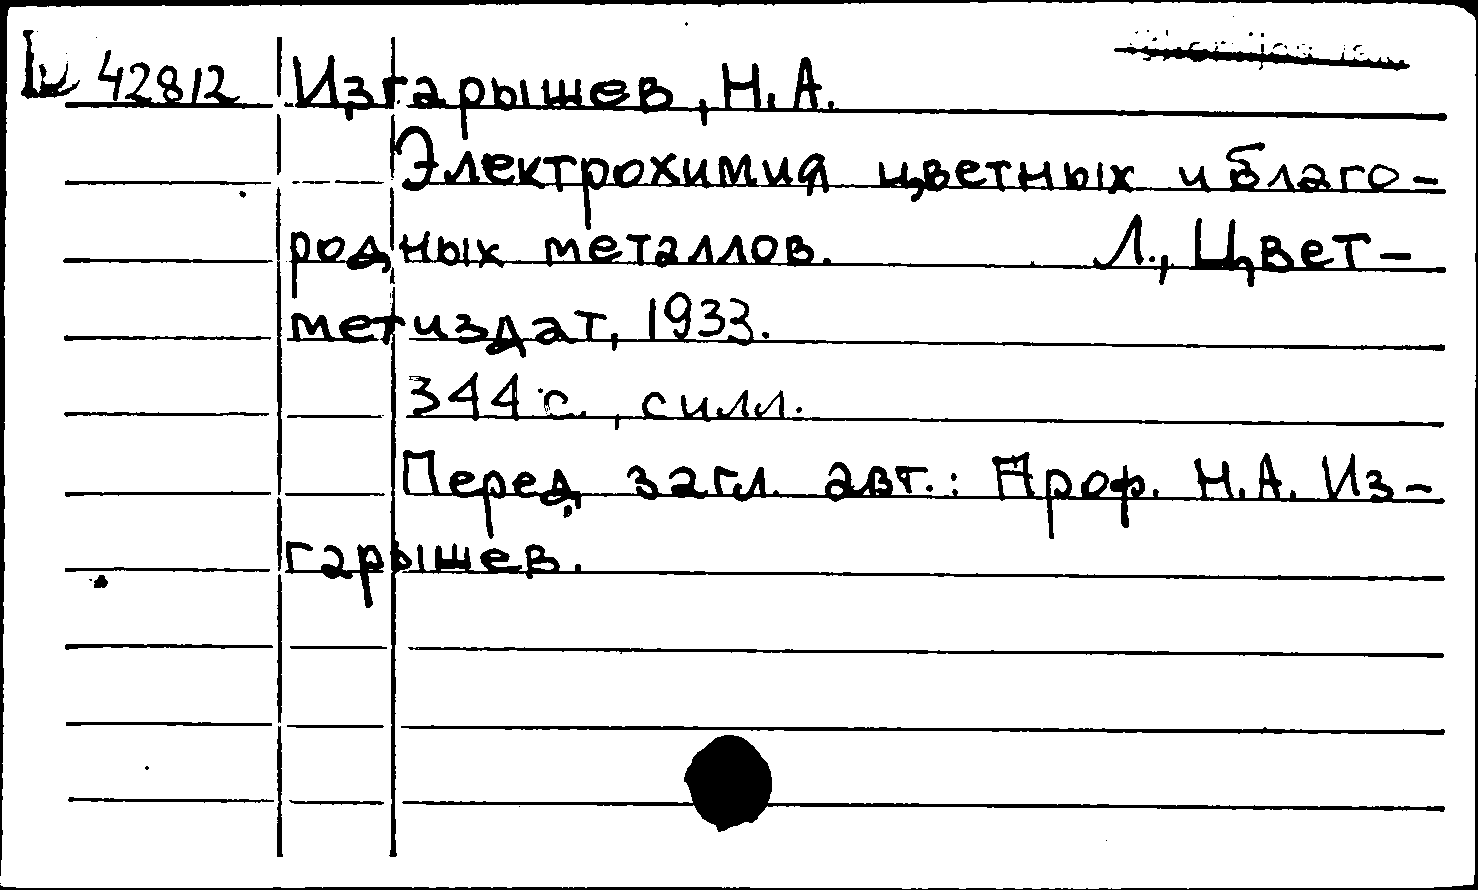 42812 Изгарышев, Н.А.
Электрохимия цветных и благо-
родных металлов. Л., Цвет-
метиздат, 1933.
344 с., с илл.
Перед загл. авт.: Проф. Н.А. Из-
гарышев.